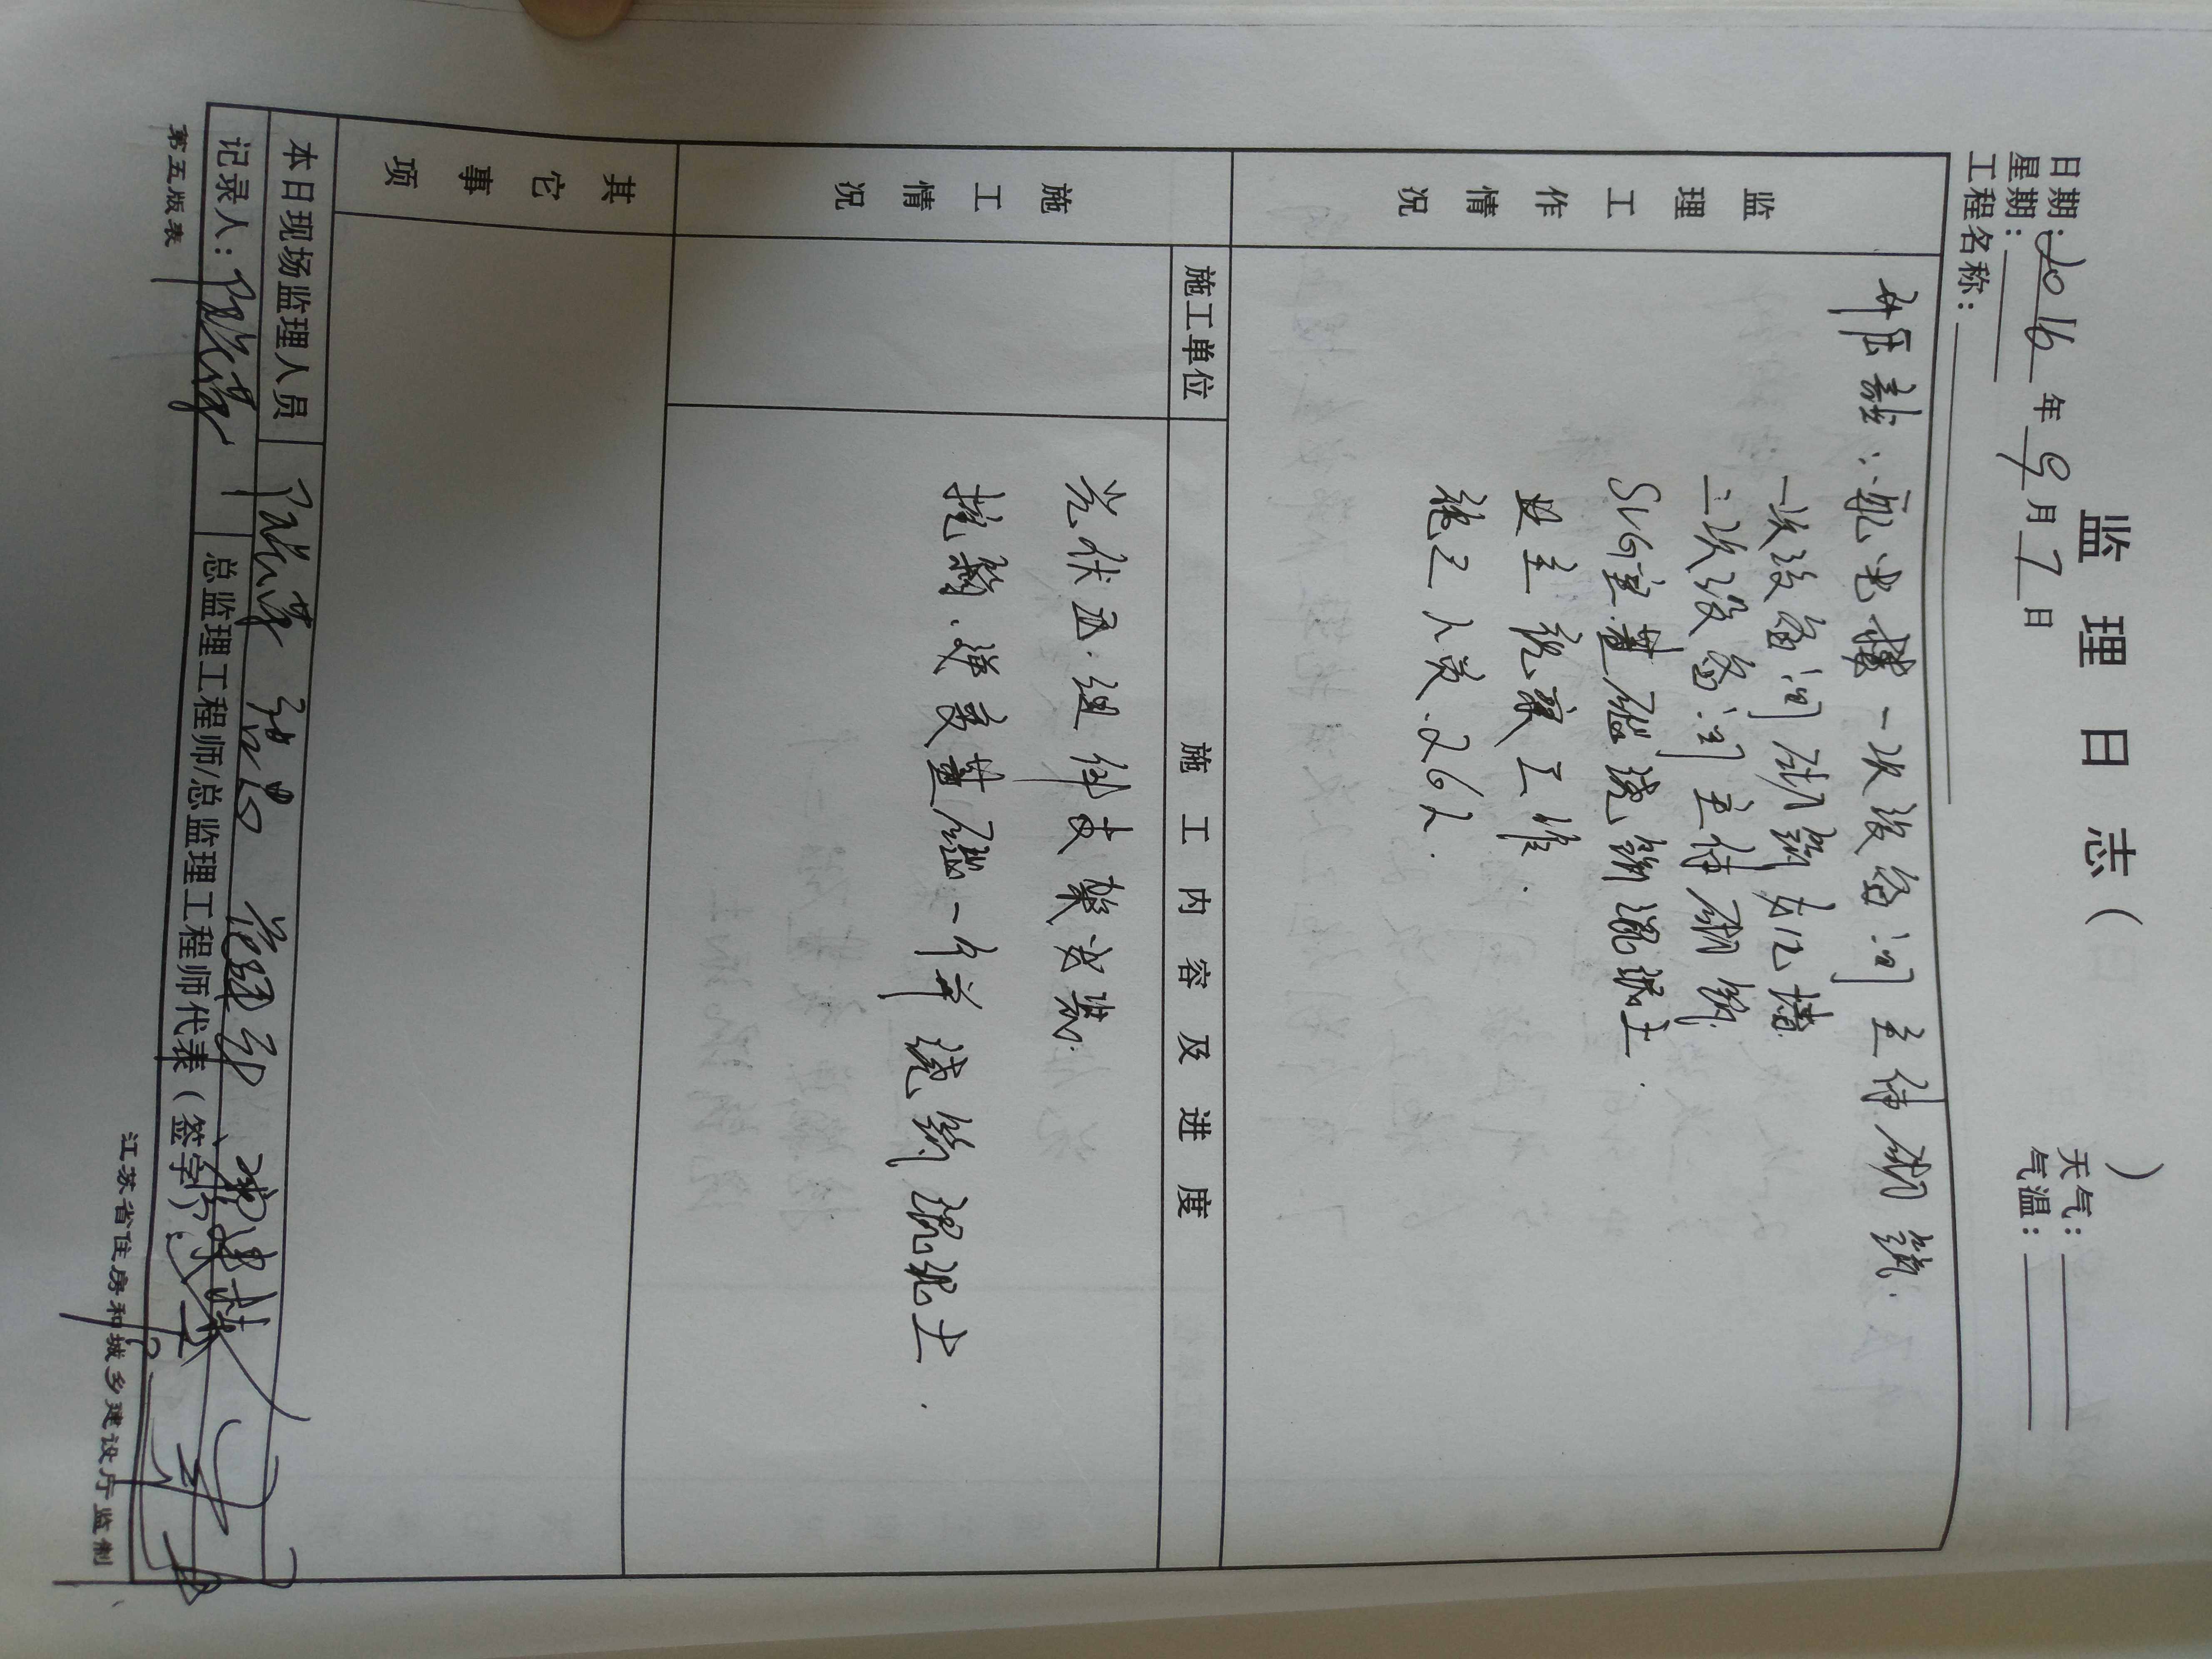 监理日志（ ）
日期：2016年9月7日 天气：
星期： 气温：
工程名称：
监理工作情况
升压站：配电楼一次设备间主体砌筑.
一次设备间砌筑女儿墙
二次设备间主体砌筑.
SVG室基础浇筑混凝土.
业主现场工作.
施工人员.26人.
施工情况
施工单位 施工内容及进度
光伏区：组件支架安装.
挖沟.
基础一件并浇筑混凝土.
其它事项
本日现场监理人员
记录人： 总监理工程师/总监理工程师代表（签字）
第五版表 江苏省住房和城乡建设厅监制